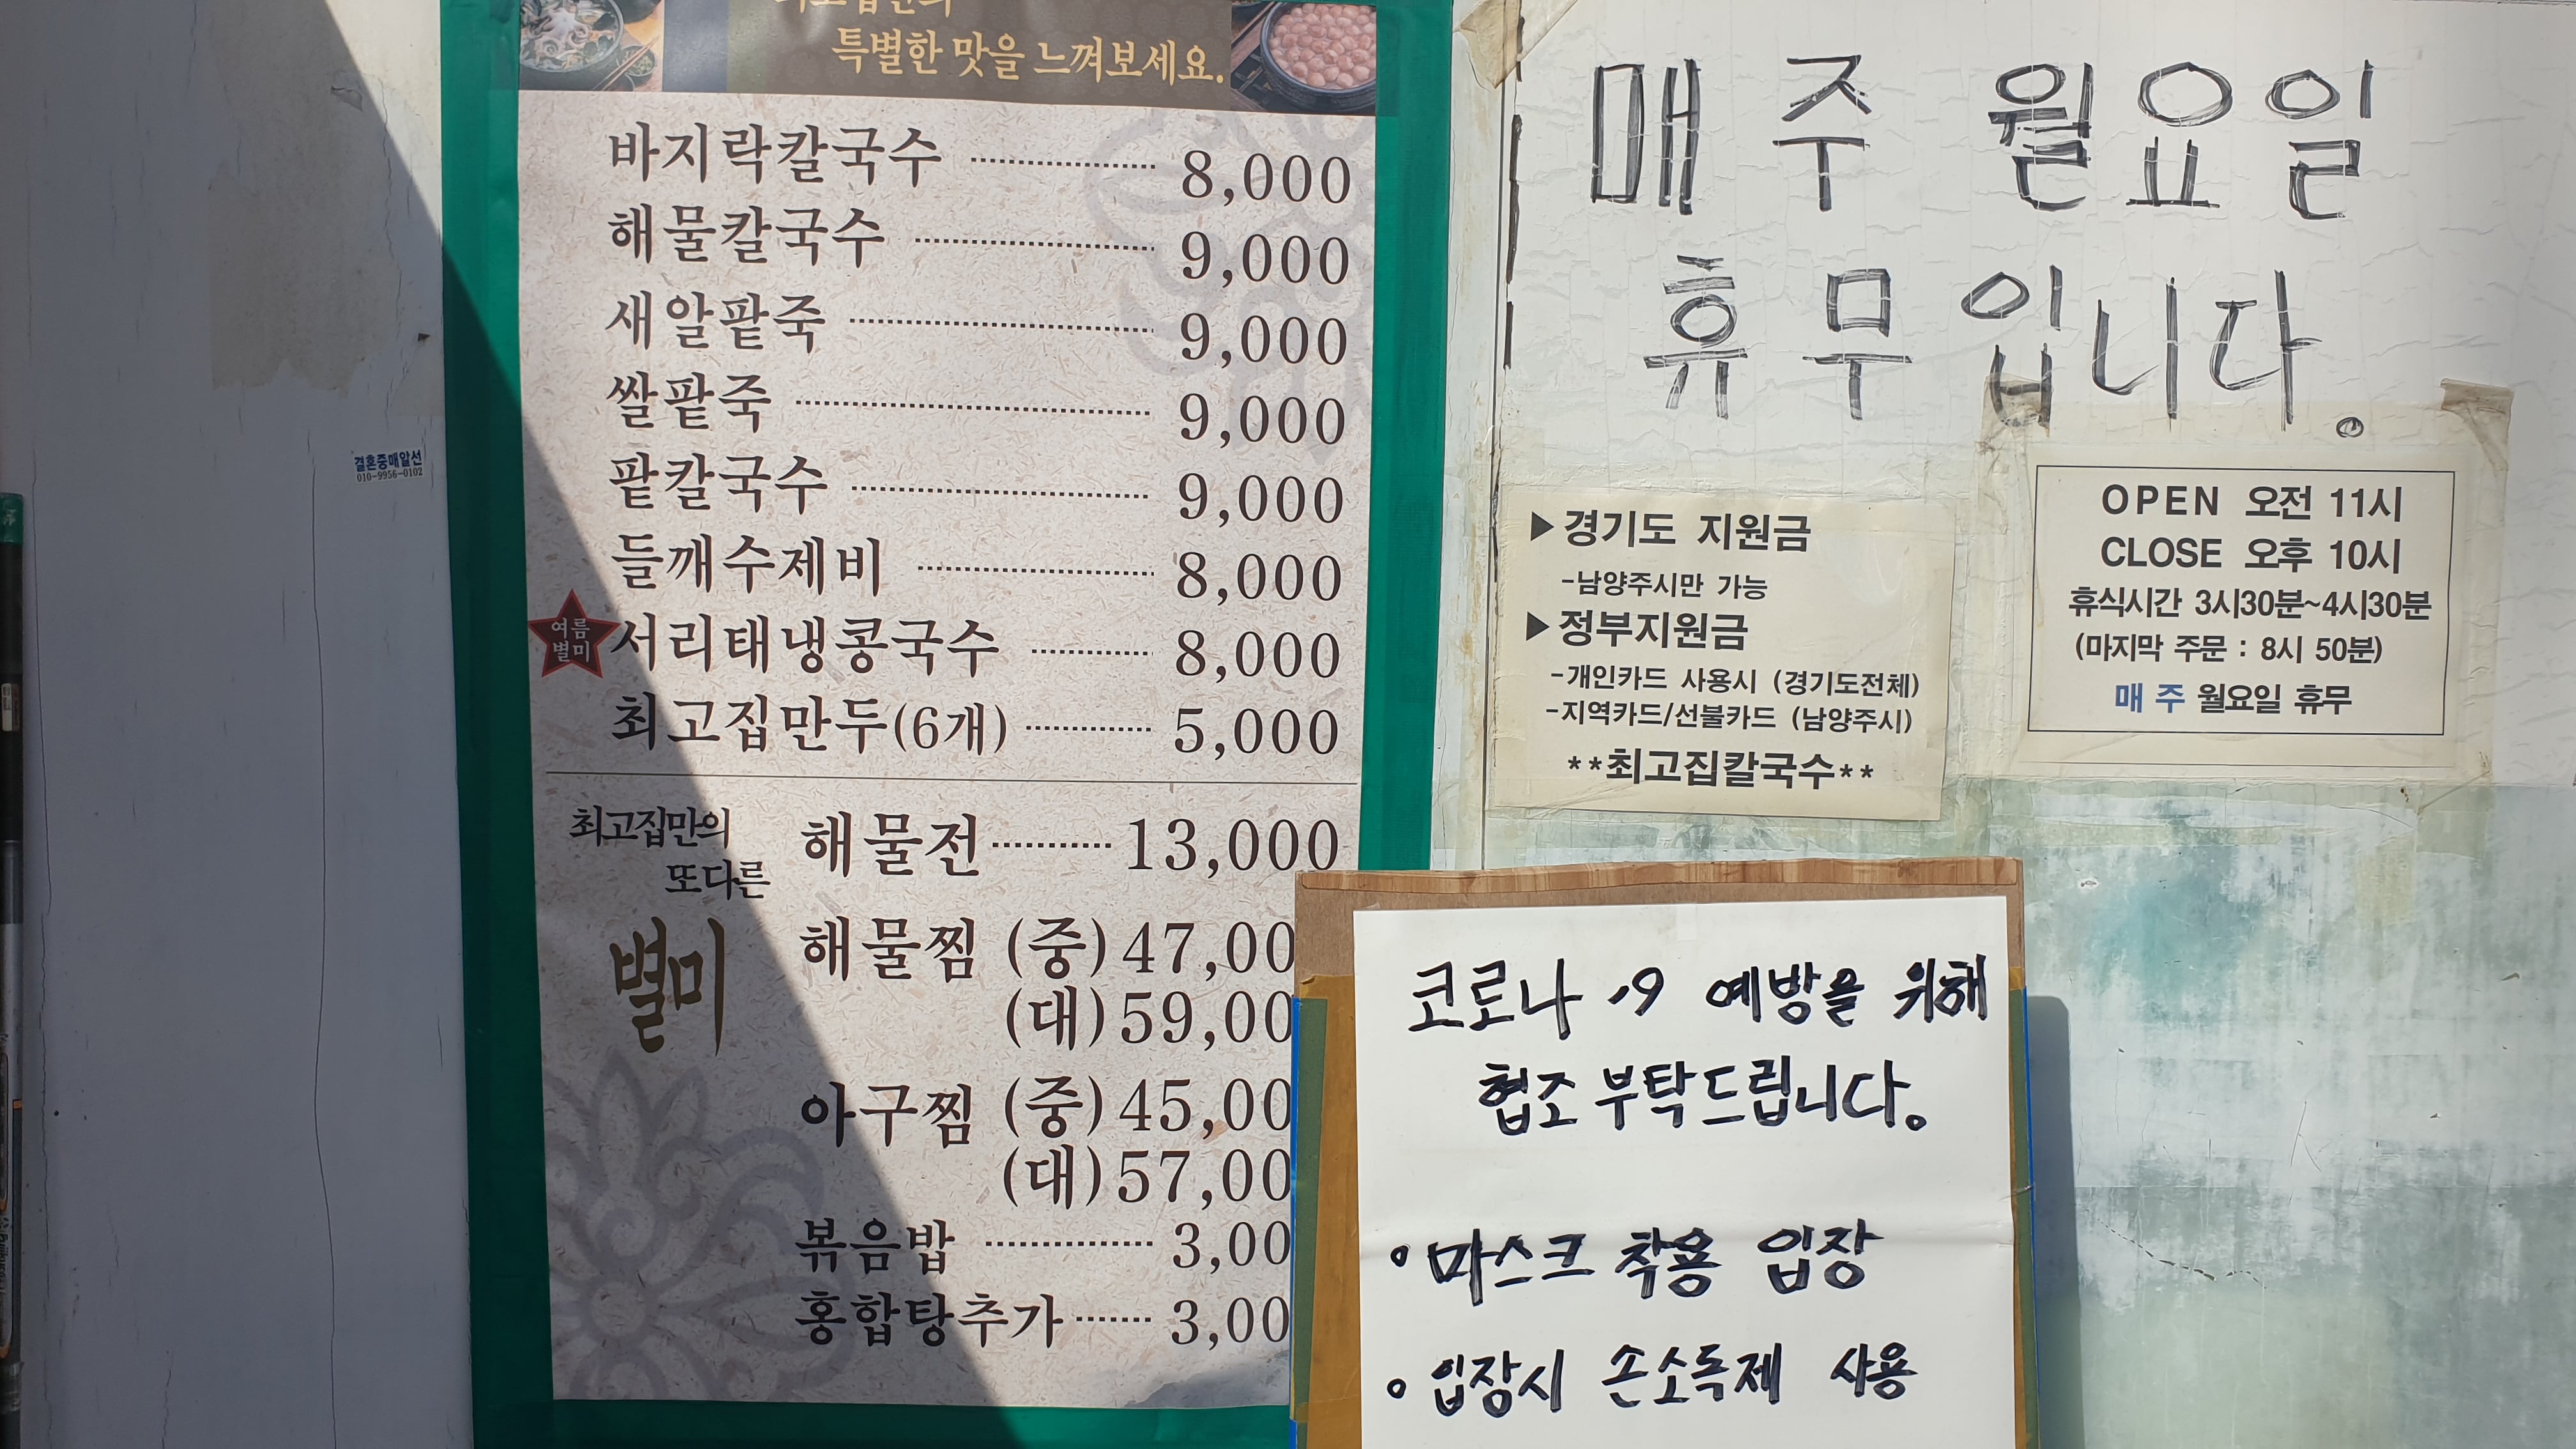 특별한 맛을 느껴보세요.
바지락칼국수 8,000
해물칼국수 9,000
새알팥죽 9,000
쌀팥죽 9,000
팥칼국수 9,000
들깨수제비 8,000
여름
별미
서리태냉콩국수 8,000
최고집만두(6개) 5,000
최고집만의
또다른
별미
해물전 13,000
해물찜 (중) 47,00
(대) 59,00
아구찜 (중) 45,00
(대) 57,00
볶음밥 3,00
홍합탕추가 3,00
결혼중매알선
010-9956-0102
매주 월요일
휴무입니다.
▶경기도 지원금
-남양주시만 가능
▶정부지원금
-개인카드 사용시 (경기도전체)
-지역카드/선불카드 (남양주시)
**최고집칼국수**
OPEN 오전 11시
CLOSE 오후 10시
휴식시간 3시30분~4시30분
(마지막 주문 : 8시 50분)
매 주 월요일 휴무
코로나 19 예방을 위해
협조 부탁드립니다.
• 마스크 착용 입장
• 입장시 손소독제 사용